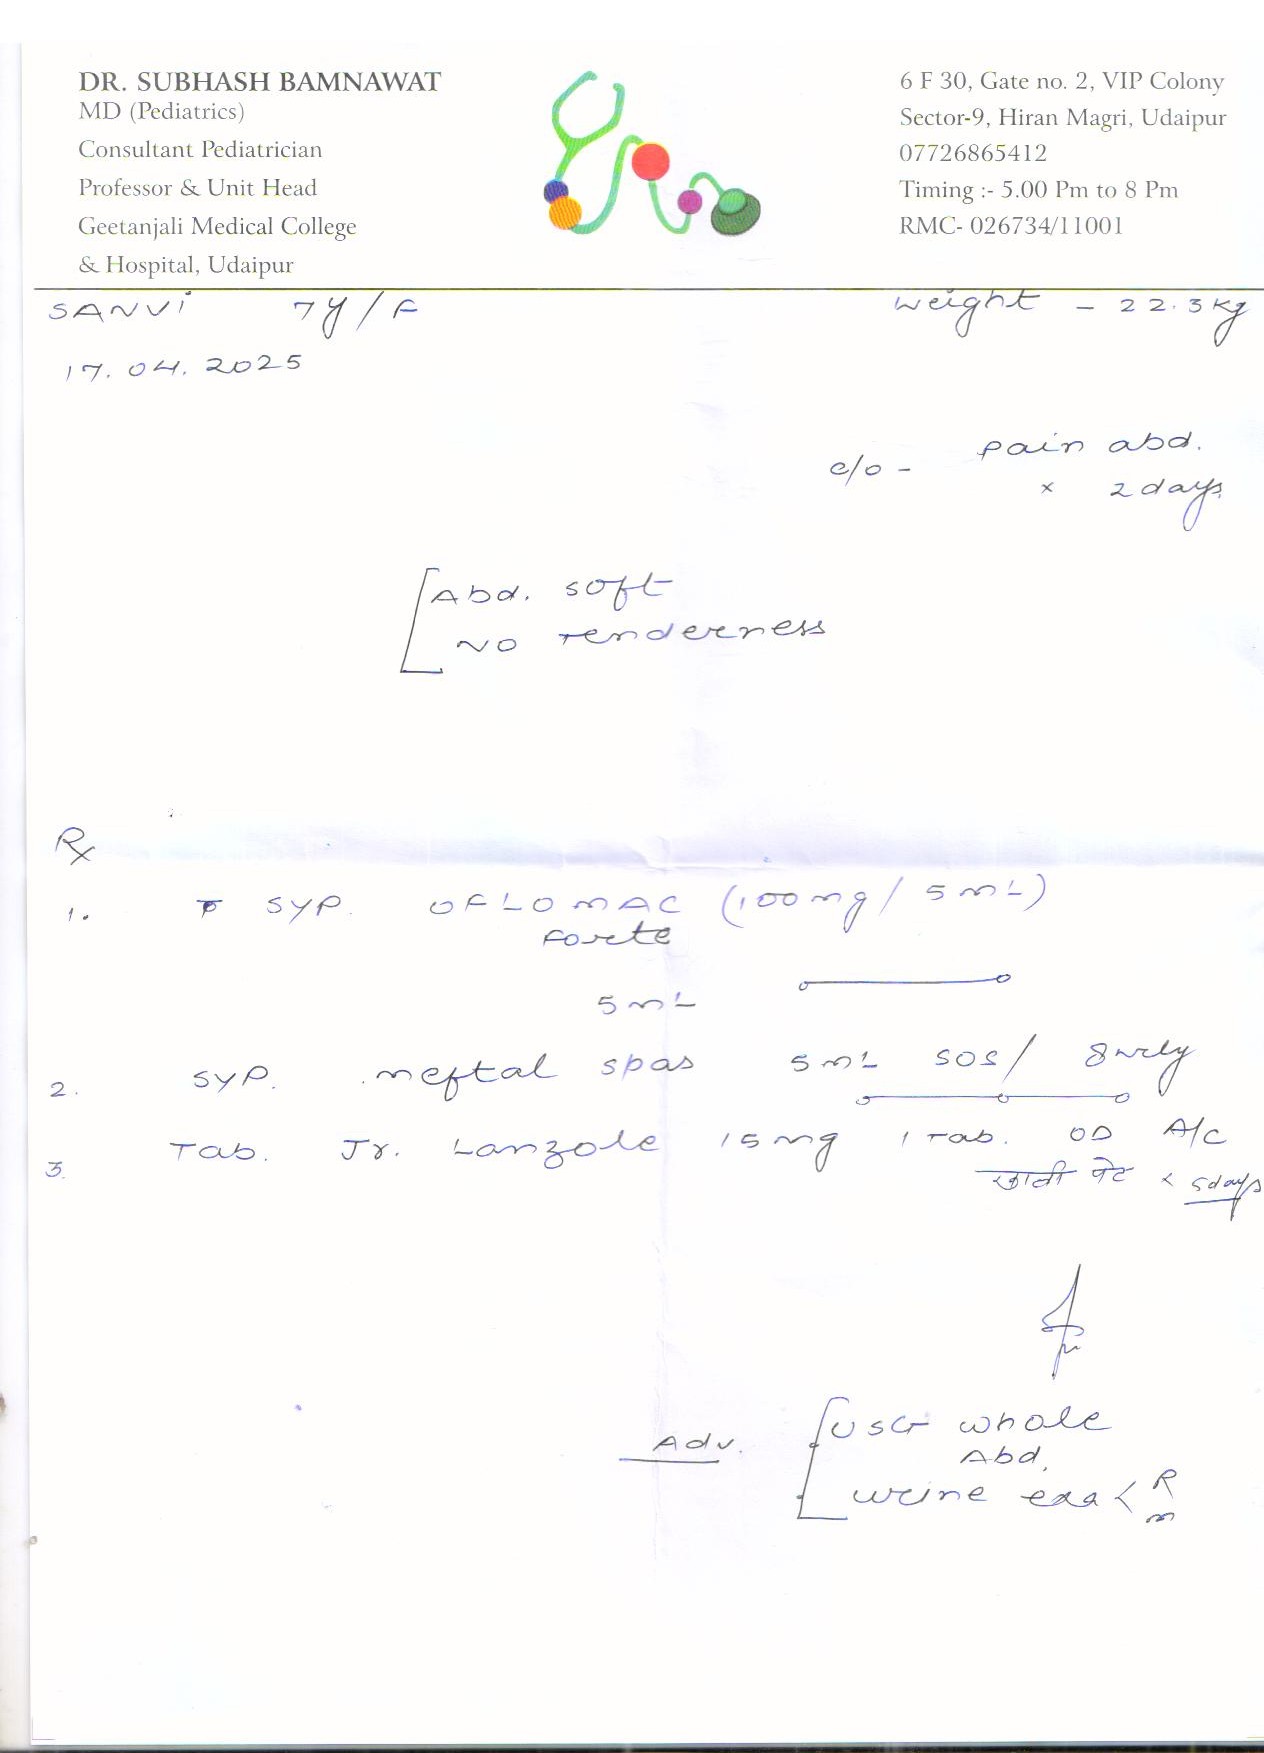 DR. SUBHASH BAMNAWAT
MD (Pediatrics)
Consultant Pediatrician
Professor & Unit Head
Geetanjali Medical College
& Hospital, Udaipur
6 F 30, Gate no. 2, VIP Colony
Sector-9, Hiran Magri, Udaipur
07726865412
Timing :- 5.00 Pm to 8 Pm
RMC- 026734/11001
SANVI 7y/F weight - 22.3 kg
17.04.2025
c/o - pain abd.
x 2 days
Abd. soft
NO tenderness
Rx
1. SYP. OFLOMAC (100 mg / 5 mL)
forte
5 mL
2. SYP. meftal spas 5 mL SOS/ 8 hrly
3. Tab. Jr. Lanzole 15 mg 1 Tab. OD A/C
खाली पेट x 5 days
Adv. USG whole
Abd.
urine exa < R
m